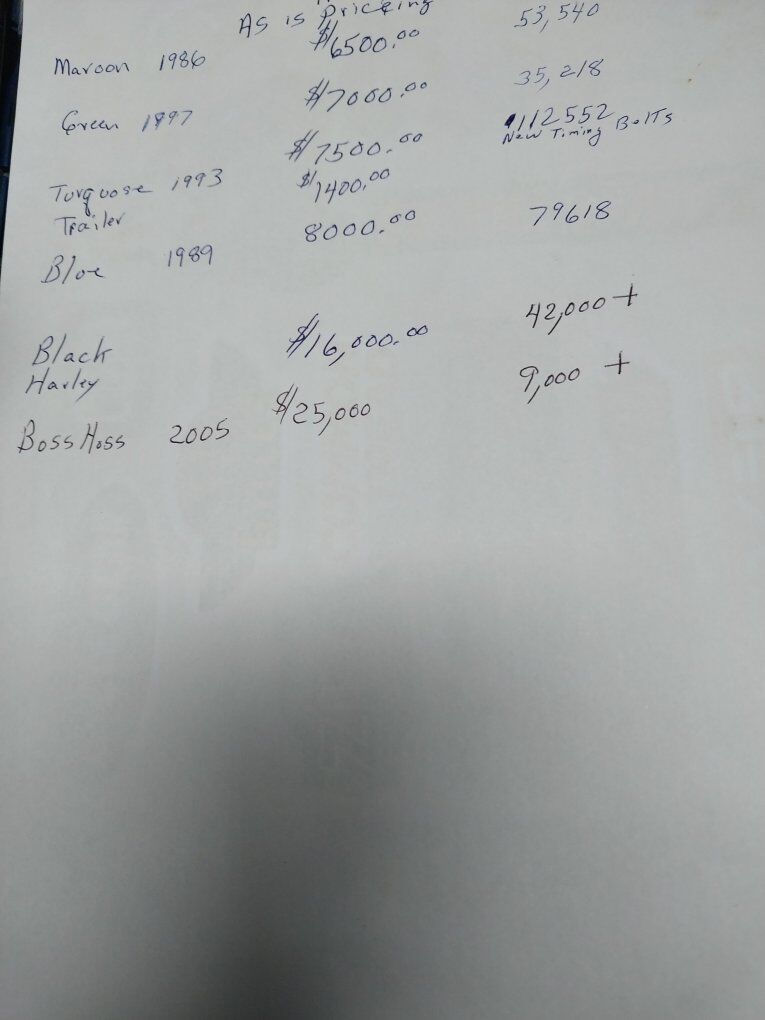 As is Priceing
Maroon 1986 $6500.00 53,540
Green 1997 $7000.00 35,218
Turquose 1993 $7500.00 112552
New Timing Belts
Trailer $1400.00
Blue 1989 8000.00 79618
Black $16,000.00 42,000+
Harley
Boss Hoss 2005 $25,000 9,000 +